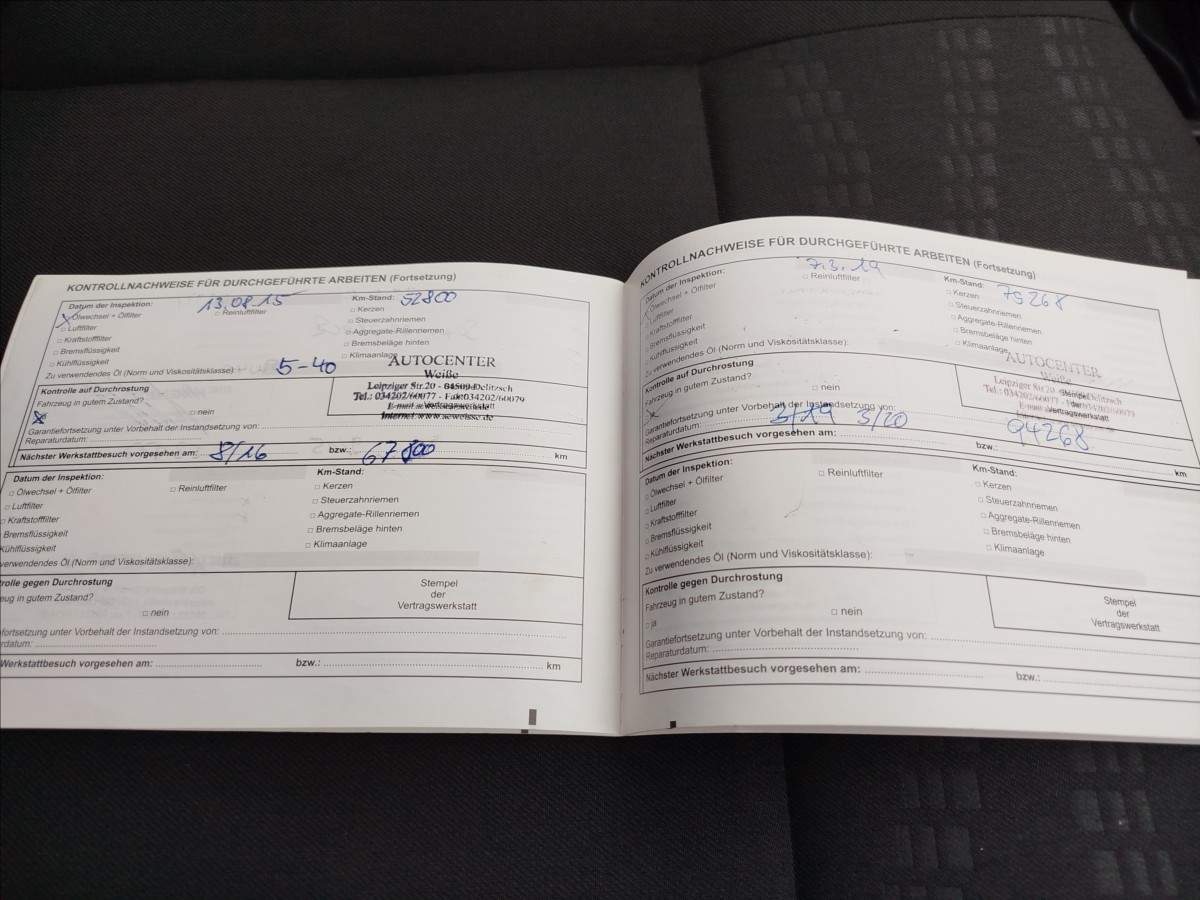 KONTROLLNACHWEISE FÜR DURCHGEFÜHRTE ARBEITEN (Fortsetzung)
Datum der Inspektion: 13.08.15 Km-Stand: 52800
Ölwechsel + Ölfilter Reinluftfilter Kerzen
Luftfilter Steuerzahnriemen
Kraftstofffilter Aggregate-Rillenriemen
Bremsflüssigkeit Bremsbeläge hinten
Kühlflüssigkeit Klimaanlage
Zu verwendendes Öl (Norm und Viskositätsklasse): 5-40
AUTOCENTER
Weiße
Leipziger Str.20 - 04509 Delitzsch
Tel.: 034202/60077 - Fax:034202/60079
Internet:www.acweisse.de
Kontrolle auf Durchrostung
Fahrzeug in gutem Zustand?
nein
Garantiefortsetzung unter Vorbehalt der Instandsetzung von:
Reparaturdatum:
Nächster Werkstattbesuch vorgesehen am: 8/16 bzw.: 67800 km
Datum der Inspektion: Km-Stand:
Ölwechsel + Ölfilter Reinluftfilter Kerzen
Luftfilter Steuerzahnriemen
Kraftstofffilter Aggregate-Rillenriemen
Bremsflüssigkeit Bremsbeläge hinten
Kühlflüssigkeit Klimaanlage
verwendendes Öl (Norm und Viskositätsklasse):
rolle gegen Durchrostung
eug in gutem Zustand?
nein
Stempel
der
Vertragswerkstatt
fortsetzung unter Vorbehalt der Instandsetzung von:
rdatum:
Werkstattbesuch vorgesehen am: bzw.: km
KONTROLLNACHWEISE FÜR DURCHGEFÜHRTE ARBEITEN (Fortsetzung)
Datum der Inspektion: 7.3.19 Km-Stand: 75268
Ölwechsel + Ölfilter Reinluftfilter Kerzen
Luftfilter Steuerzahnriemen
Kraftstofffilter Aggregate-Rillenriemen
Bremsflüssigkeit Bremsbeläge hinten
Kühlflüssigkeit Klimaanlage
Zu verwendendes Öl (Norm und Viskositätsklasse):
AUTOCENTER
Weiße
Leipziger Str.20
Tel.: 034202/60077
Stempel
der
Vertragswerkstatt
Kontrolle auf Durchrostung
Fahrzeug in gutem Zustand?
nein
Garantiefortsetzung unter Vorbehalt der Instandsetzung von:
Reparaturdatum:
Nächster Werkstattbesuch vorgesehen am: 3/19 3/20 bzw.: 94268 km
Datum der Inspektion: Km-Stand:
Ölwechsel + Ölfilter Reinluftfilter Kerzen
Luftfilter Steuerzahnriemen
Kraftstofffilter Aggregate-Rillenriemen
Bremsflüssigkeit Bremsbeläge hinten
Kühlflüssigkeit Klimaanlage
Zu verwendendes Öl (Norm und Viskositätsklasse):
Kontrolle gegen Durchrostung
Fahrzeug in gutem Zustand?
ja nein
Stempel
der
Vertragswerkstatt
Garantiefortsetzung unter Vorbehalt der Instandsetzung von:
Reparaturdatum:
Nächster Werkstattbesuch vorgesehen am: bzw.: